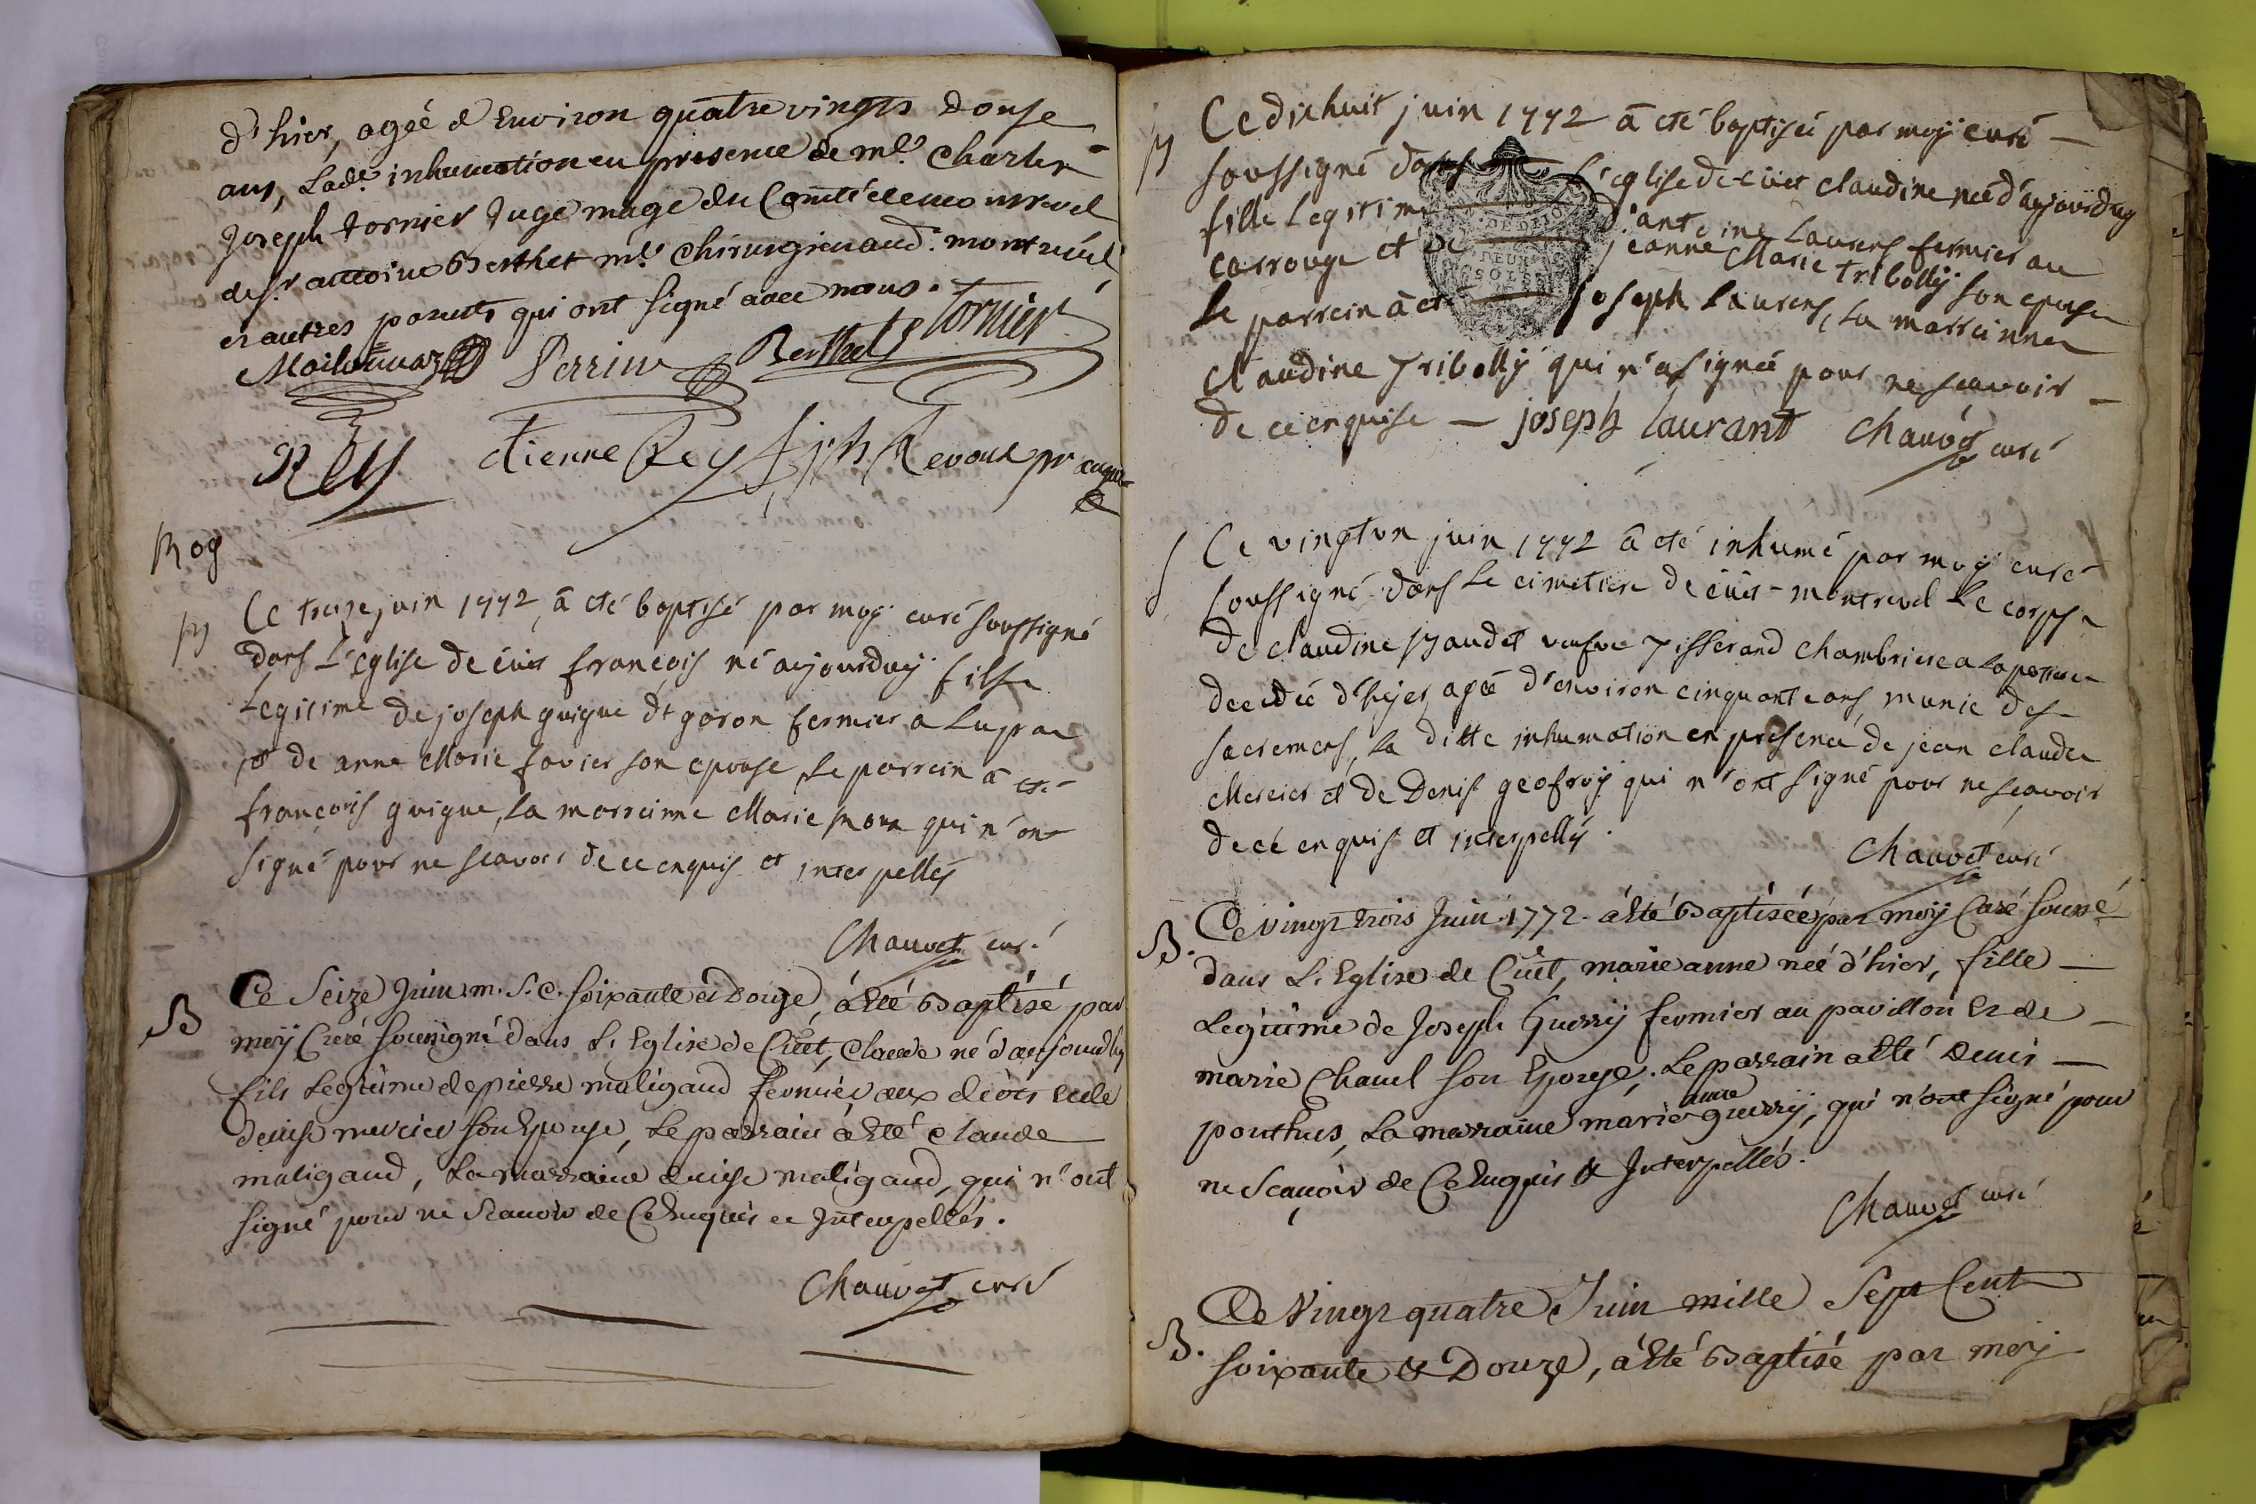 d'hier, agéé d Environ quatre vingts douse
ans, Lade. inhumation en présence de me. Charles
Joseph tornier Juge mage du Comté de montrevel
de sr. antoine Berthet me. Chirurgien aud. montrevel
et autres parents qui ont signé avec nous.
Perrin Berthet Tornier
Rey etienne Rey jph Revoux
B
Ce treize juin 1772, â eté baptisé par moy curé soussigné
dans L'eglise de cüet françois né aujourduy fils
Legitime de joseph guigue dt goron fermier a
et de anne Marie favier son epouse, Le parrein â eté
françois guigue, La marreinne Marie qui n'ont
signé pour ne scavoir de ce enquis et interpellés
Chauvet curé
B
Ce Seize Juin m. S. C. soixante et Douze, á Eté Baptisé par
moy Curé soussigné dans L'Eglise de Cuet, Claude né d'aujourdhuy
fils Legitime de pierre maligaud fermier aux et de
denise mercier son Epouse, Le parrain á Eté Claude
maligaud, La marraine denise maligaud, qui n'ont
signé pour ne Scavoir de Ce Enquis et Interpellés.
Chauvet curé
B
Ce dixhuit juin 1772 â eté baptisée par moy curé
soussigné dans L'eglise de cüet claudine neé d'aujourduy
fille Legitime d'antoine Laurens fermier au
carrouge et de jeanne Marie tribolly son epouse
Le parrein â eté joseph Laurens, La marreinne
claudine Tribolly qui n'a signée pour ne scavoir
de ce enquise joseph laurant Chauvet curé
S
Ce vingtun juin 1772 â eté inhumé par moy curé
soussigné dans Le cimetiere de cüet-montrevel Le corps
de claudine Baudet veufve Tisserand chambriere a La
decedée d'hyer, agée d'environ cinquante ans, munie des
sacremens, La ditte inhumation en presence de jean claude
Mercier et de Denis geofroy qui n'ont signé pour ne scavoir
de ce enquis et interpellés.
Chauvet curé
B.
Ce vingt trois Juin. 1772. á Eté Baptisée par moy Curé soussé
dans L'Eglise de Cuët, marie anne neé d'hier, fille
Legitime de Joseph Guerry fermier au pavillon et de
marie Chanel son Epouse; Le parrain a Eté denis
ponthus, La marraine marie anne guerry, qui n'ont signé pour
ne Scavoir de Ce Enquis & Interpellés.
Chauvet curé
B.
Ce Vingt quatre Juin mille Sept Cent
soixante & Douze, á Eté Baptisé par moy